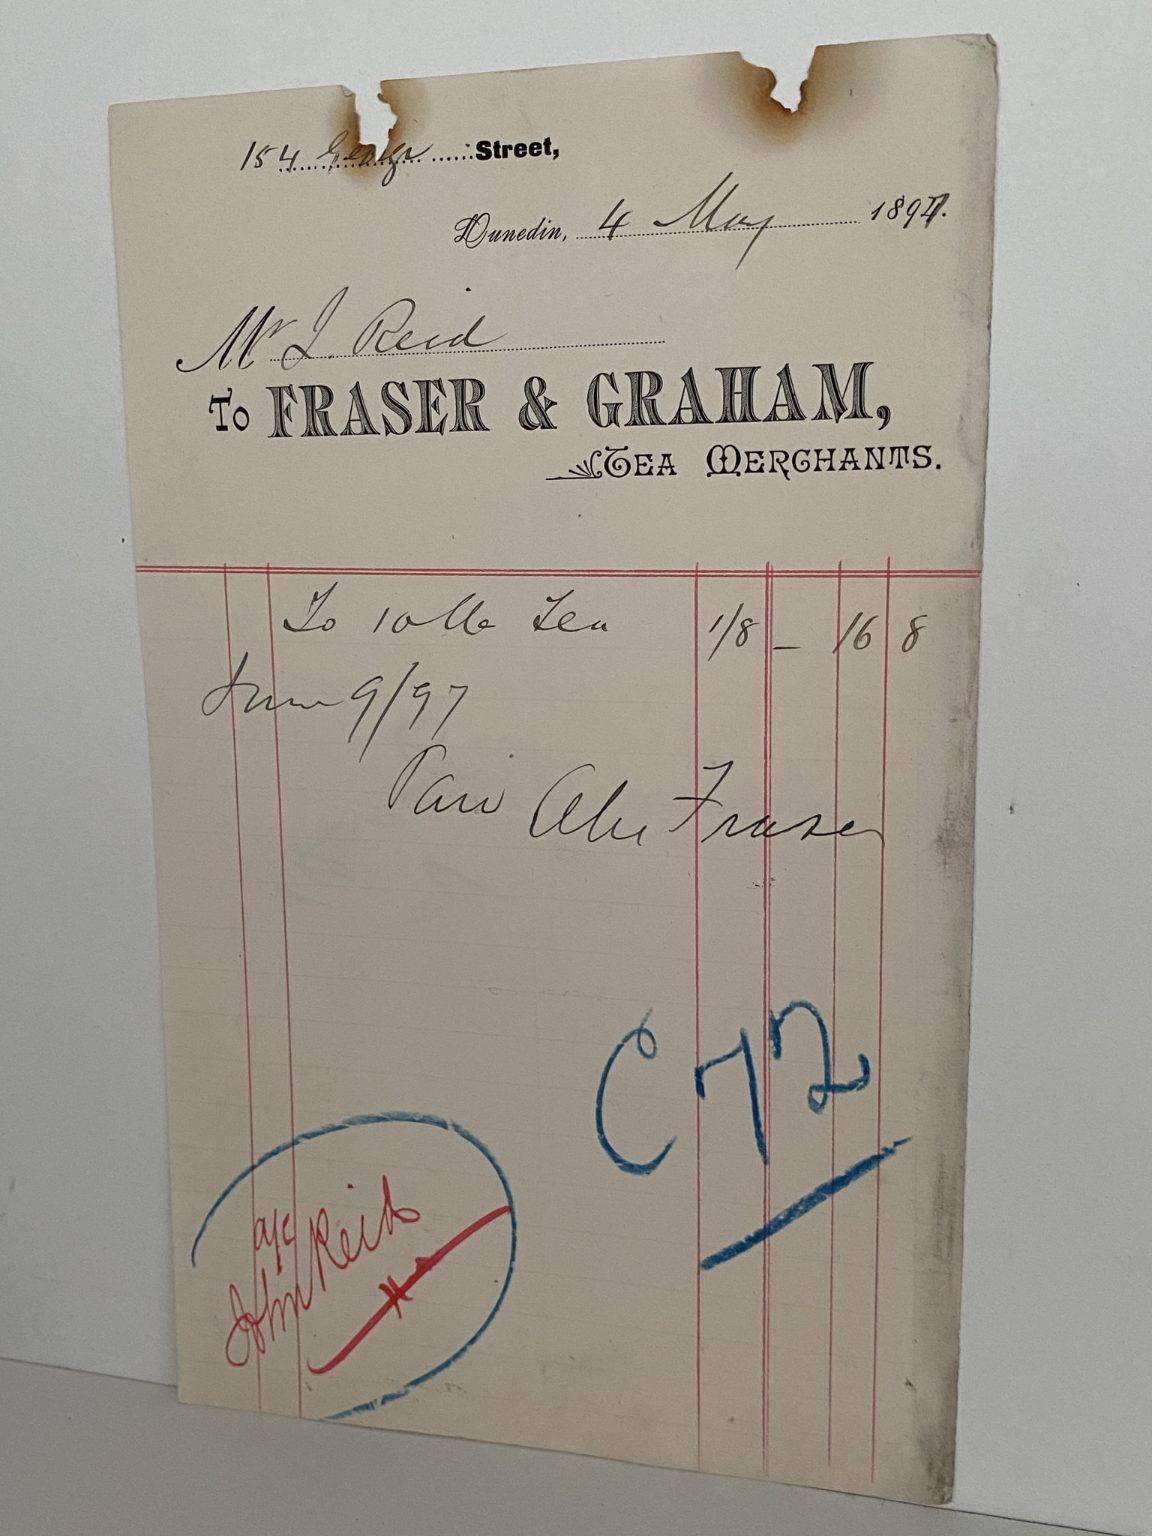 154 George Street,
Dunedin, 4 May 1897.
Mr J. Reid
To FRASER & GRAHAM,
TEA MERCHANTS.
To 10 lb Tea 1/8 – 16 8
June 9/97
Paid Alex Fraser
C 72
a/c
John Reid